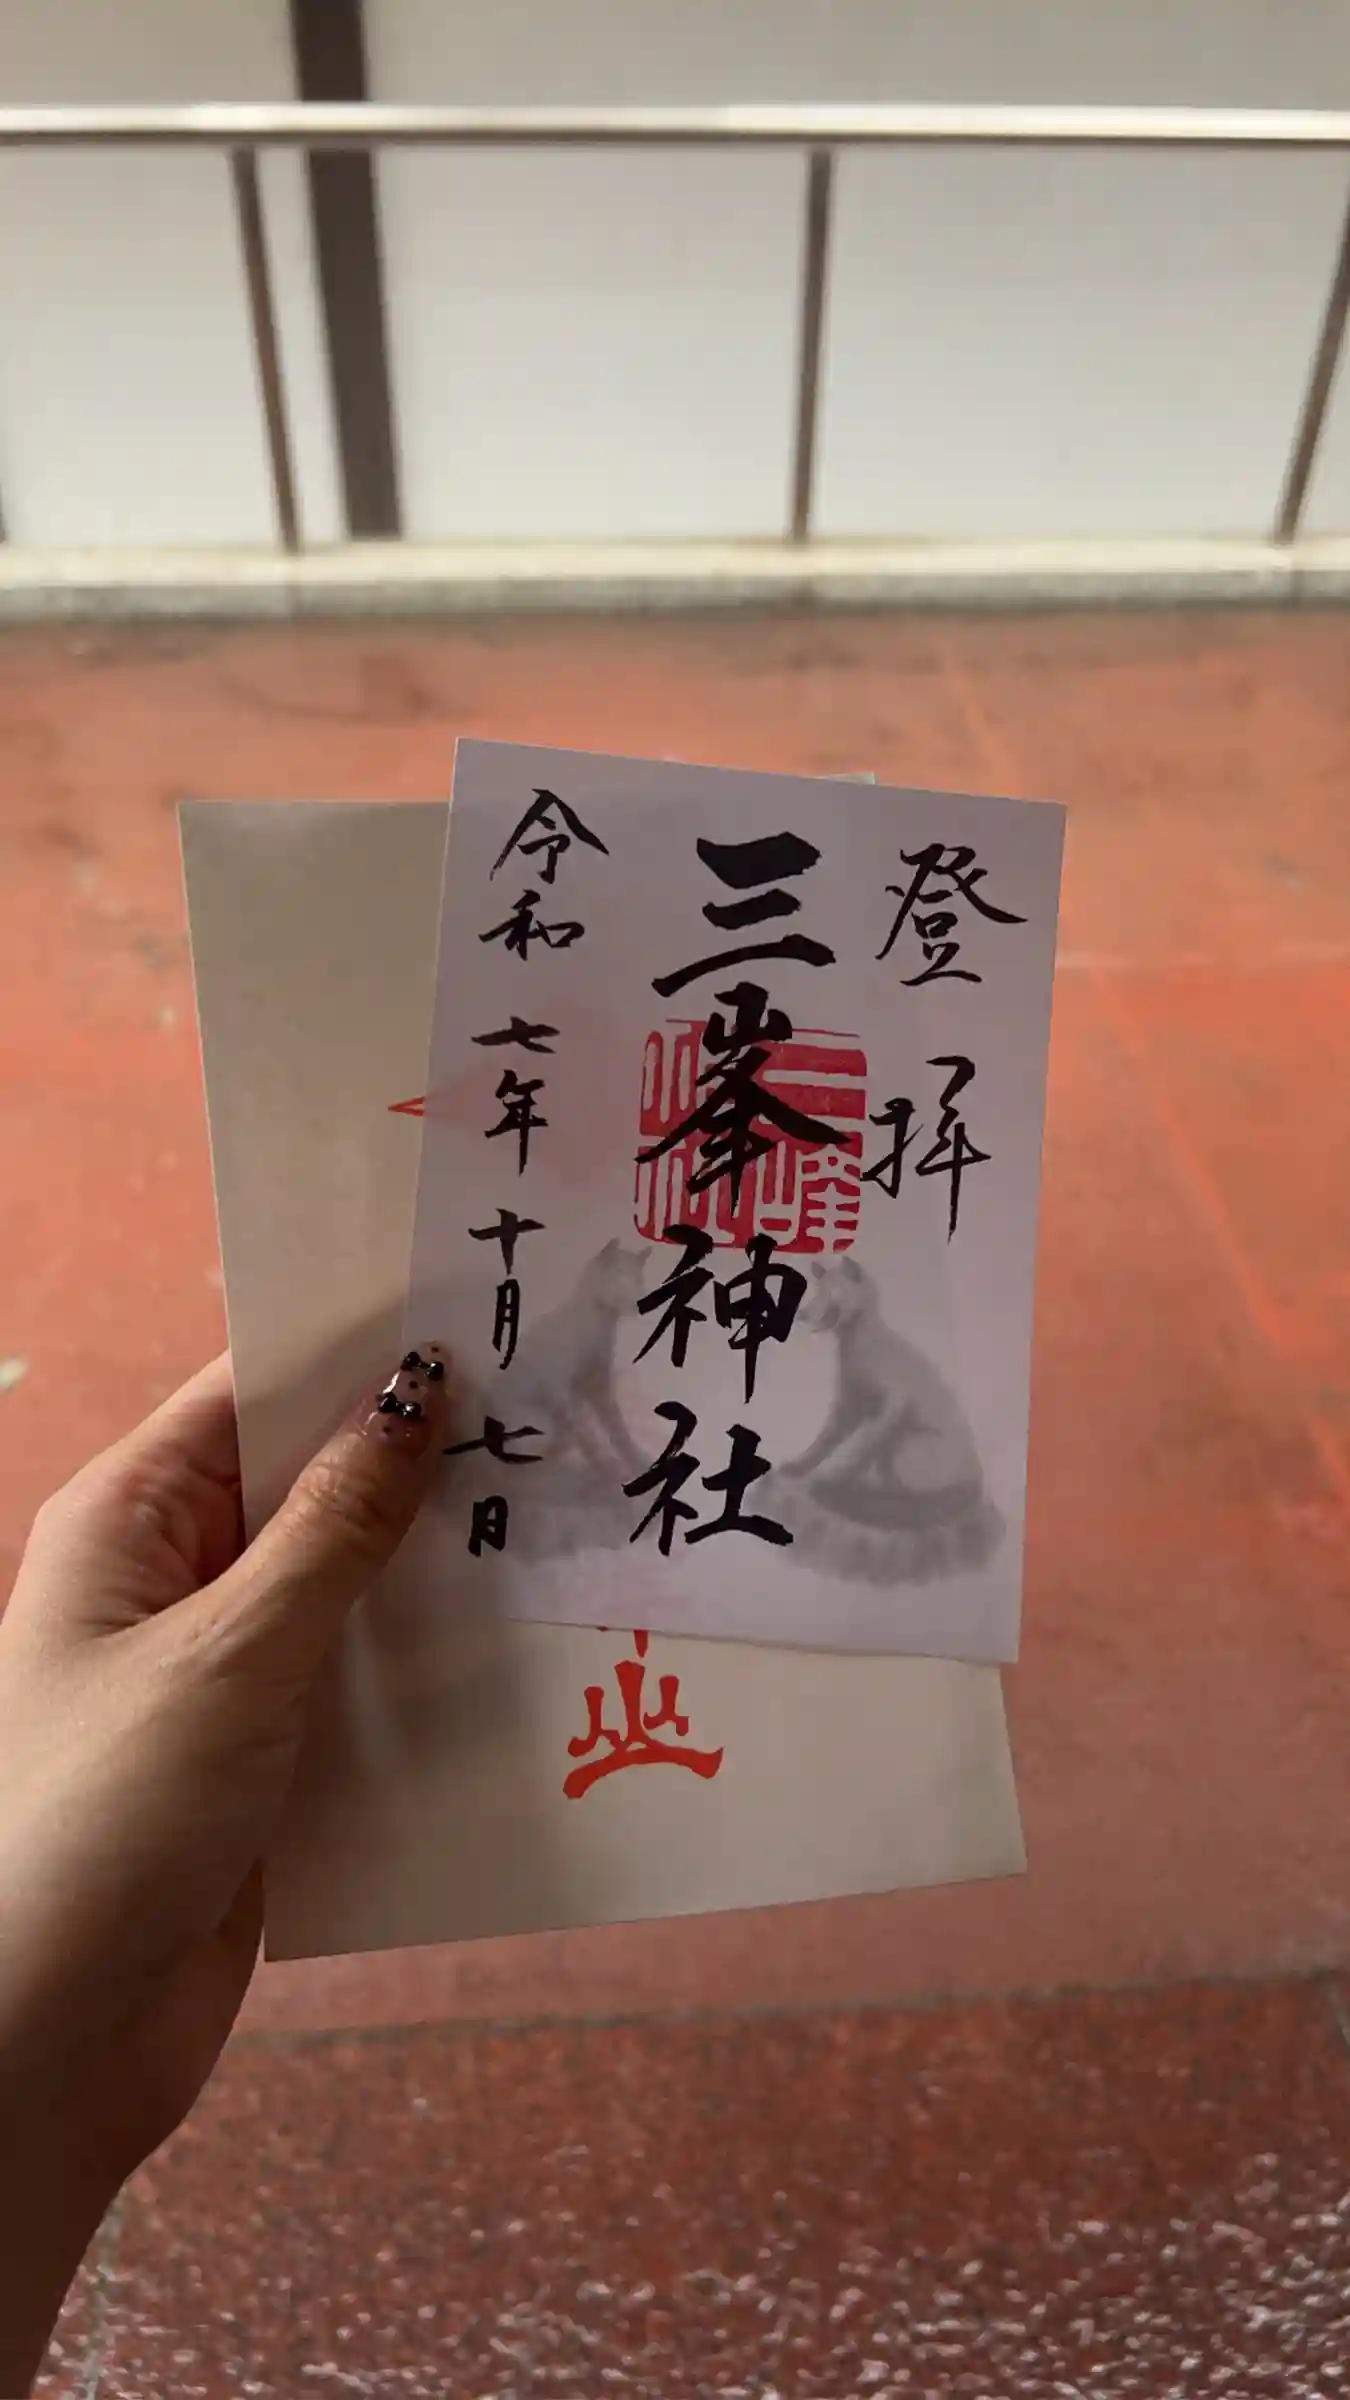 登拝
三峯神社
令和七年十月七日
山